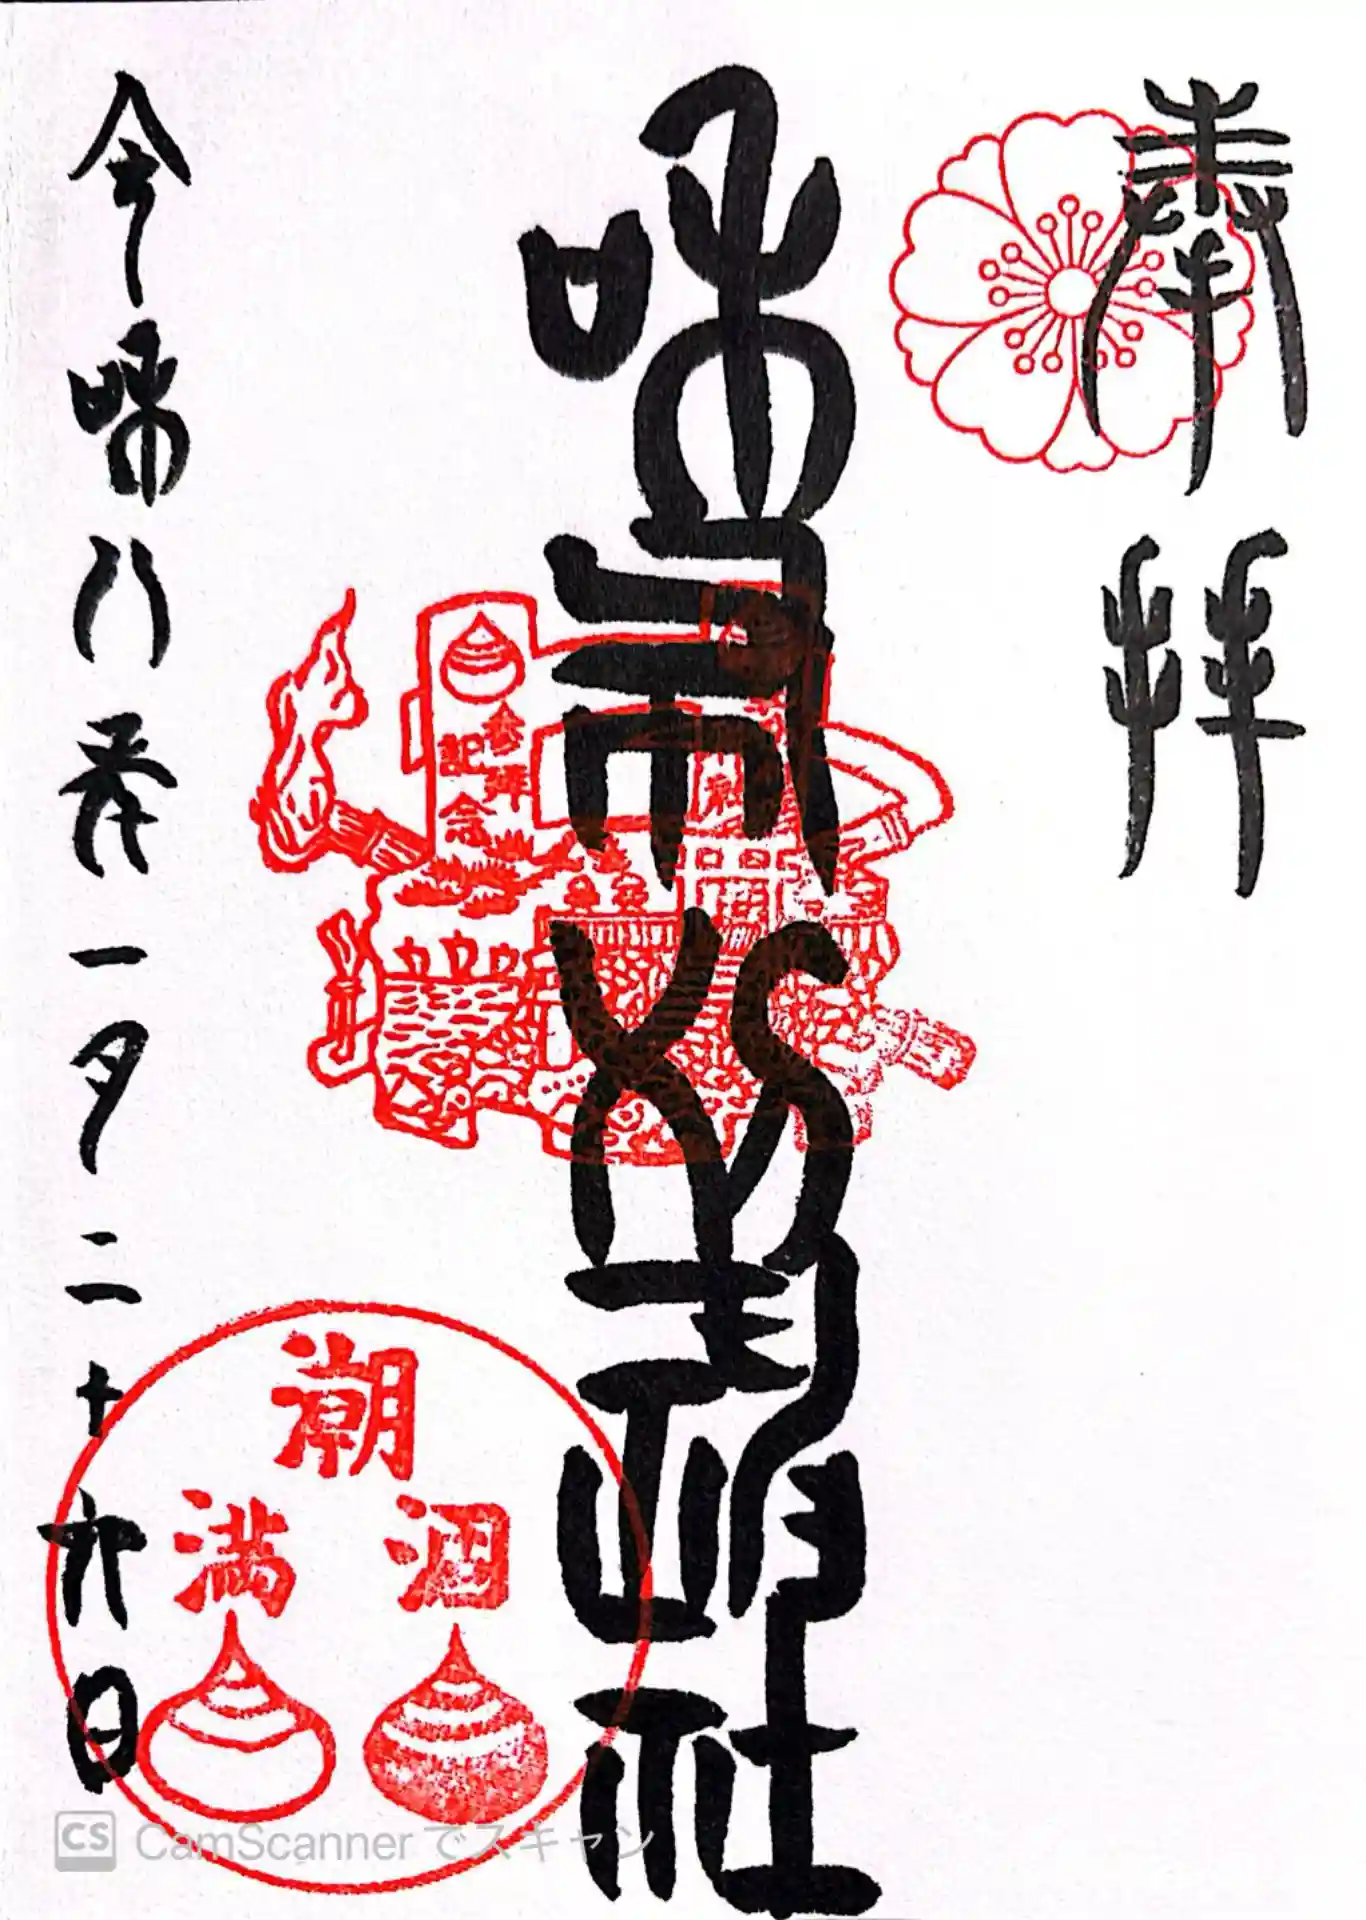 奉拝
和布刈神社
参拝
記念
潮
涸
満
令和八年一月二十九日
CS CamScanner でスキャン